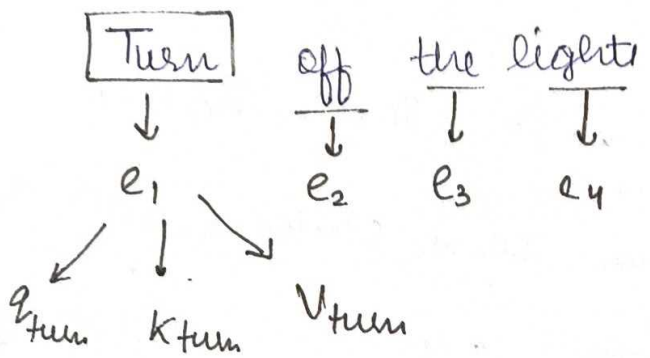 Turn off the lights
e1 e2 e3 e4
qturn kturn Vturn